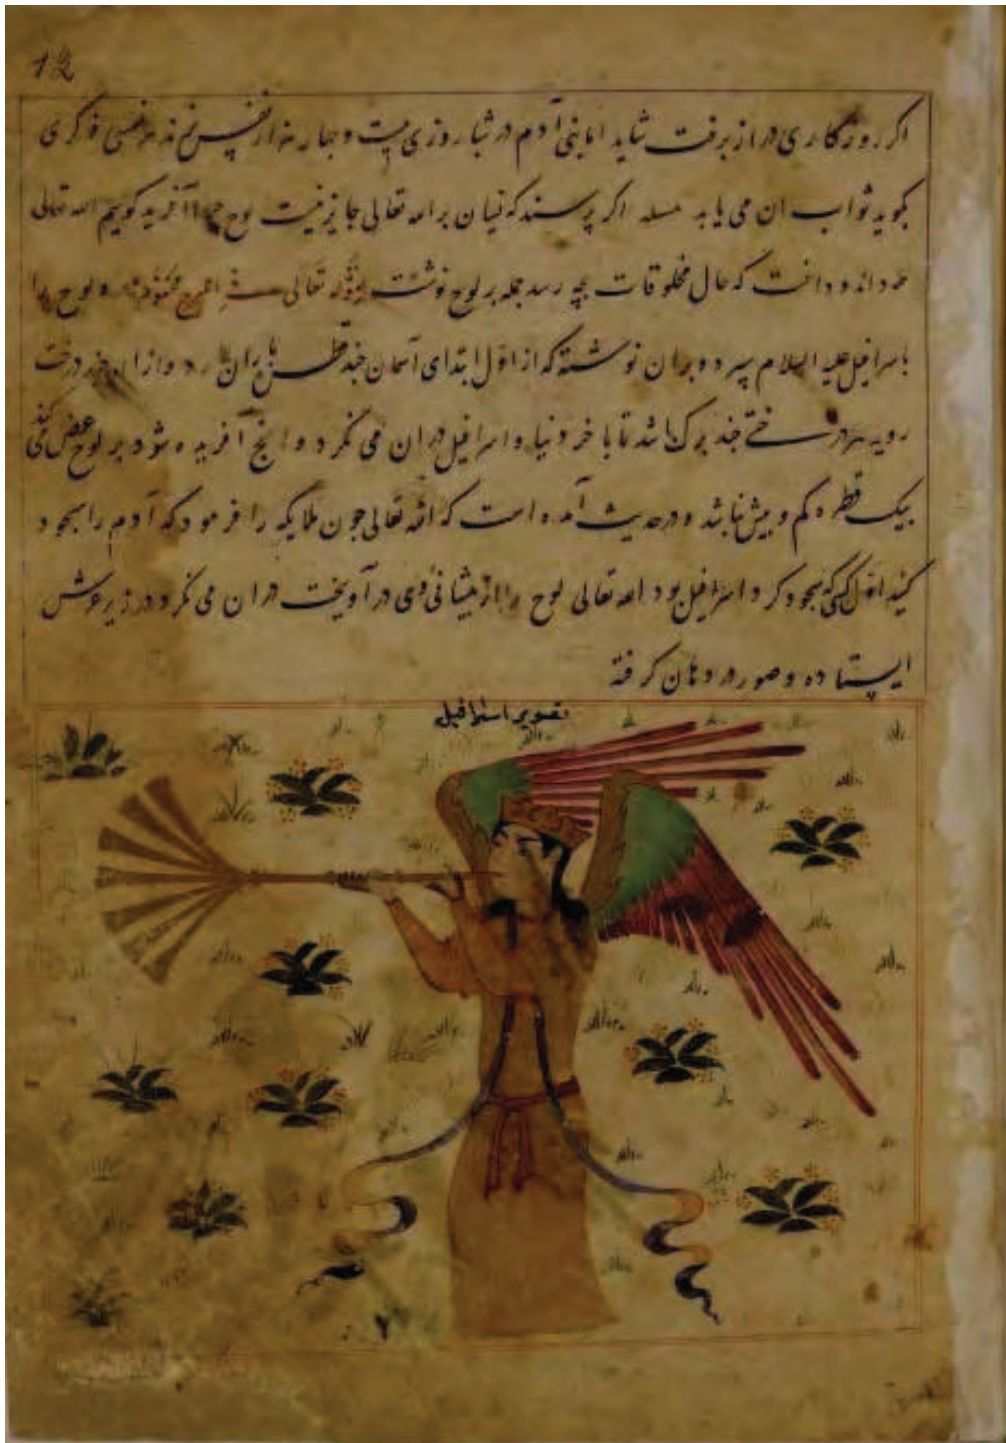 12
اکر روزکاری دراز برفت شاید اما بنی آدم در شبا روزی بیست و چهار هزار نفس زند هر نفسی ذکری
بکوید ثواب ان می یابد مسله اکر پرسند که نسیان بر الله تعالی جایز نیست لوح چرا آفرید کویم الله تعالی
داند و دانست که حال مخلوقات بچه رسد جمله بر لوح نوشت قوله تعالی فی لوح محفوظ و لوح را
باسرافیل علیه السلام سپرده و بران نوشته که از اول ابتدای آسمان جند قطره باران و ازان جند درخت
روید هر درختی جند برک باشد تا باخر دنیا و اسرافیل دران می نکرد و انج آفریده شود بر لوح عرض می کند
بیک قطره کم و بیش نباشد و در حدیث آمده است که الله تعالی جون ملایکه را فرمود که آدم را سجود
کنید اول کسی که سجود کرد اسرافیل بود الله تعالی لوح را از پیشانی وی در آویخت دران می نکرد و در زیر عرش
ایستاده و صور در دهان کرفته
تصویر اسرافیل